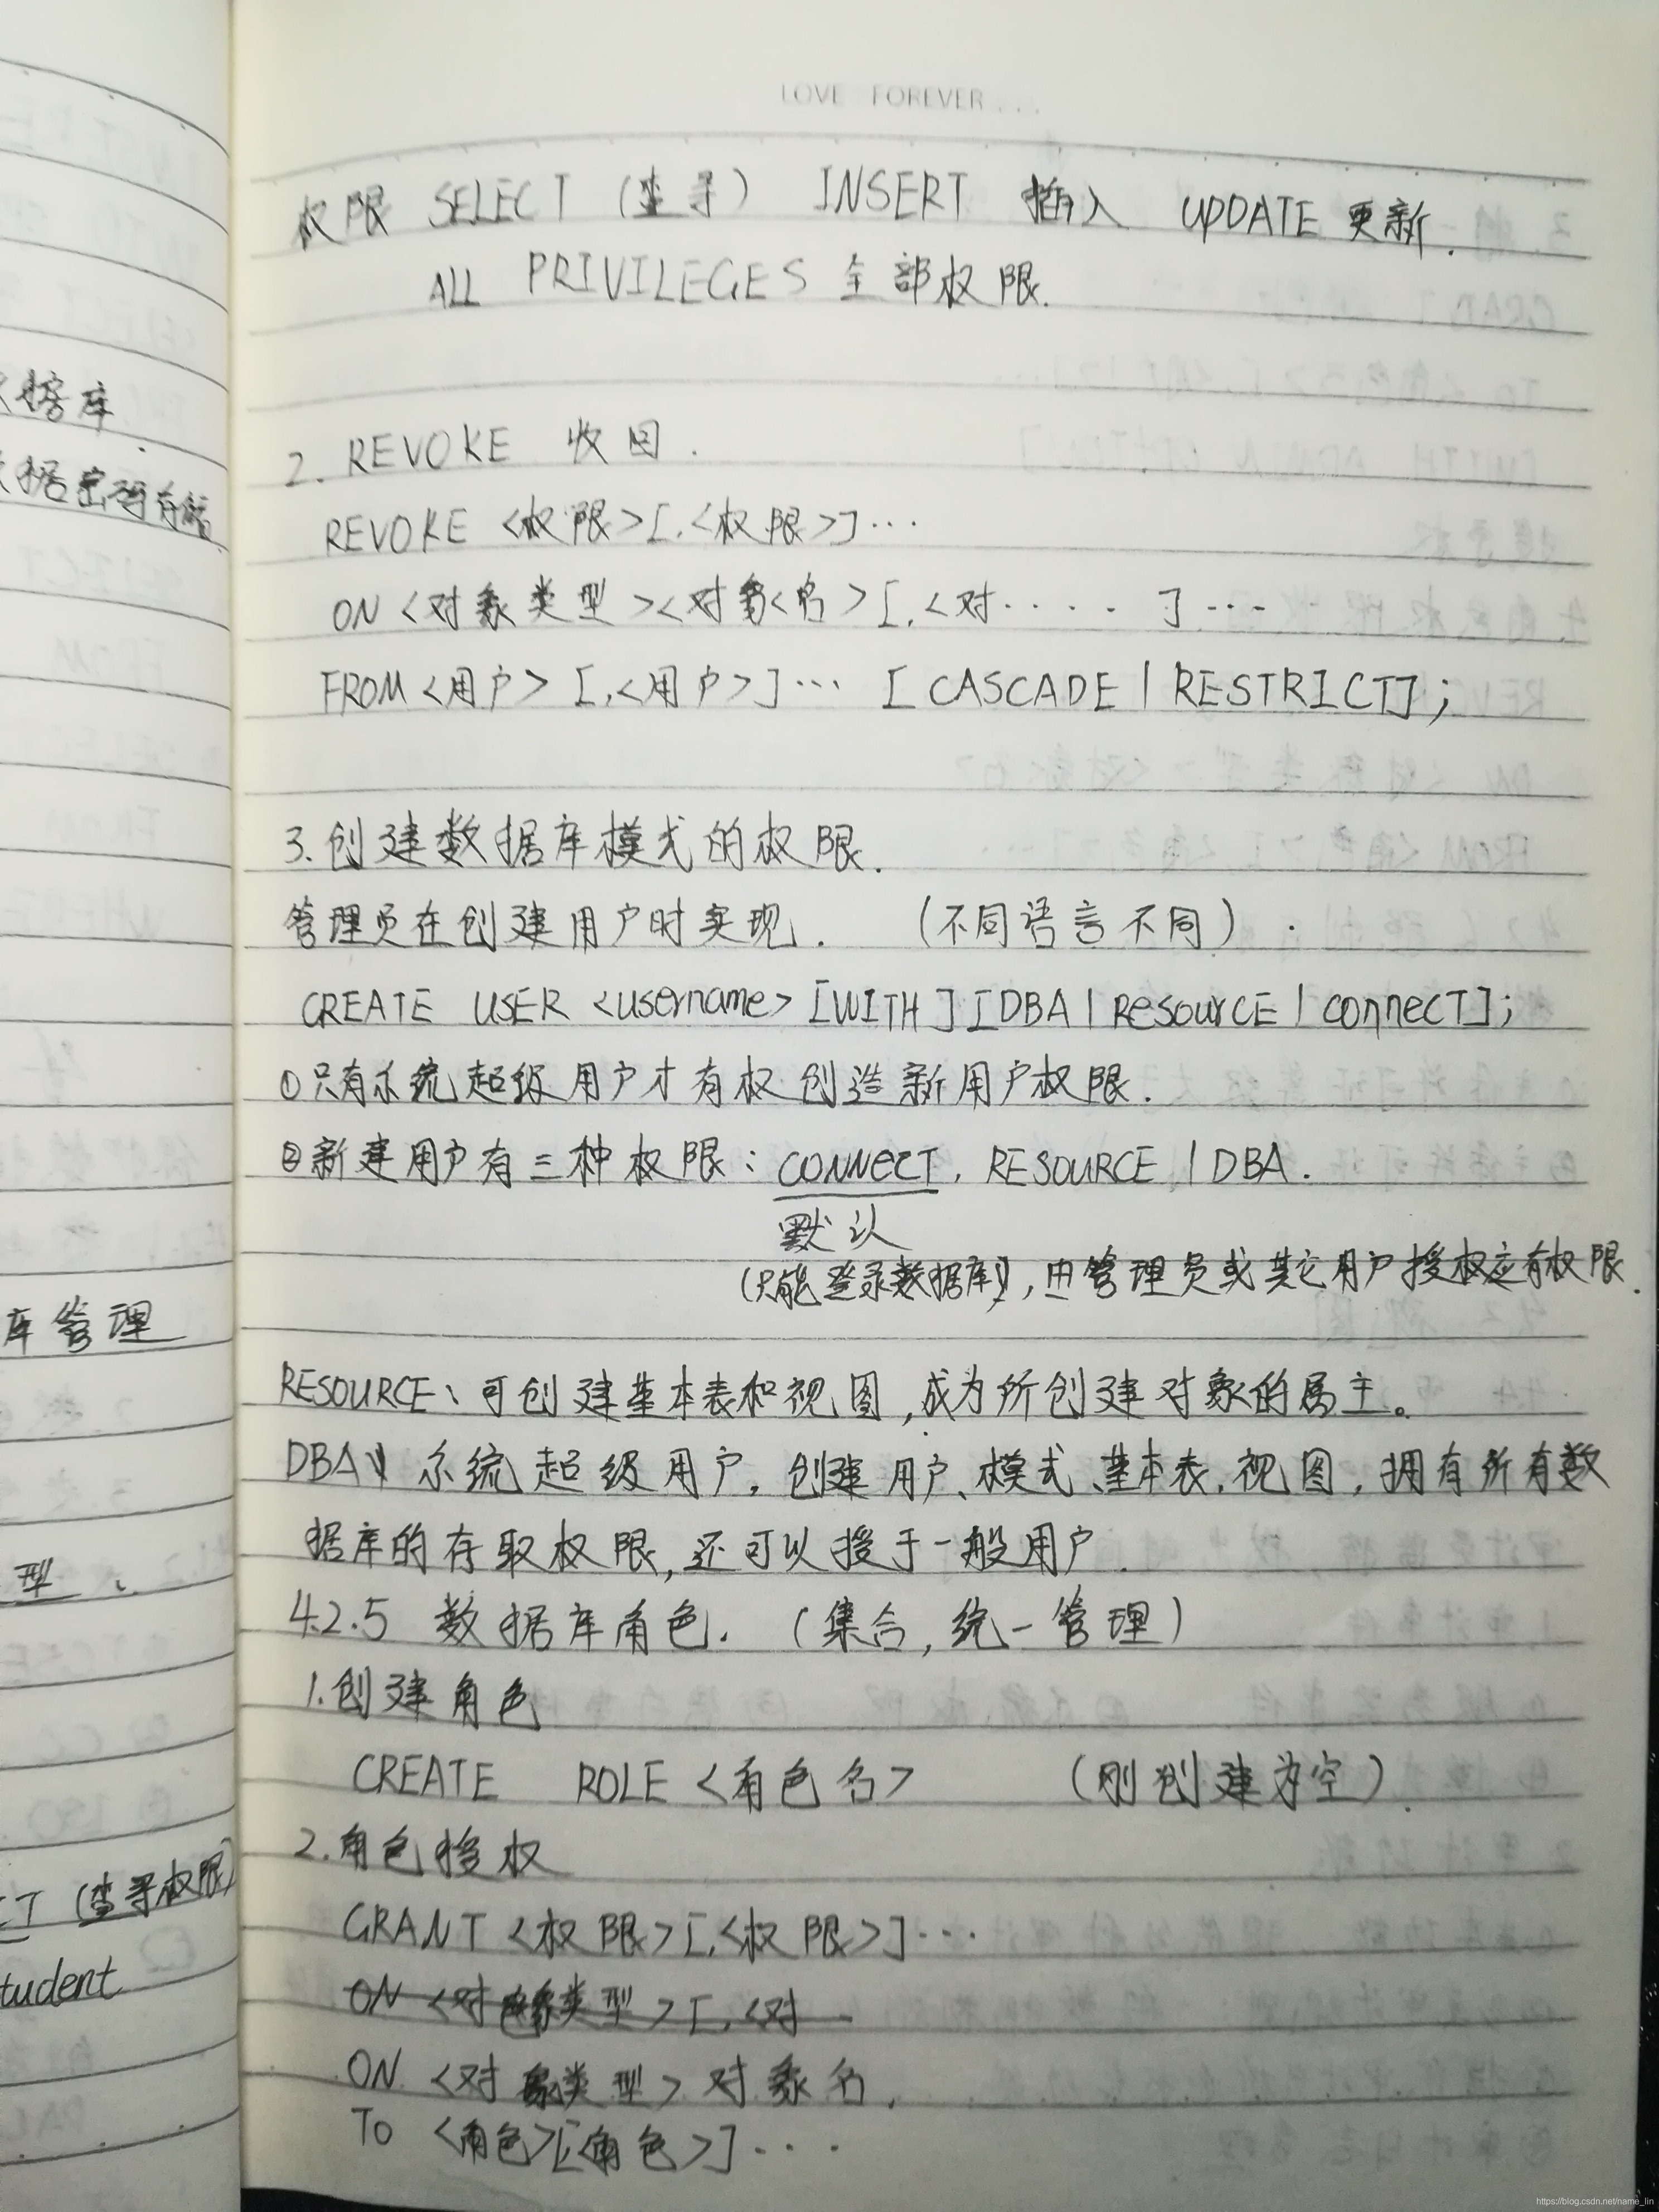 LOVE FOREVER...
权限 SELECT (查寻) INSERT 插入 UPDATE 更新.
ALL PRIVILEGES 全部权限.
2. REVOKE 收回.
REVOKE <权限>[,<权限>]...
ON <对象类型><对象<名>[,<对.....]...
FROM <用户> [,<用户>]... [CASCADE | RESTRICT];
3.创建数据库模式的权限.
管理员在创建用户时实现. (不同语言不同).
CREATE USER <username> [WITH] [DBA | Resource | connecT];
①只有系统超级用户才有权创造新用户权限.
②新建用户有三种权限: CONNECT, RESOURCE | DBA.
默认
(只能登录数据库), 由管理员或其它用户授权应有权限.
RESOURCE: 可创建基本表和视图,成为所创建对象的属主。
DBA: 系统超级用户, 创建用户、模式、基本表,视图,拥有所有数
据库的存取权限,还可以授于一般用户.
4.2.5 数据库角色. (集合,统一管理)
1.创建角色
CREATE ROLE <角色名> (刚创建为空).
2.角色授权
GRANT <权限>[,<权限>]...
ON <对象类型>[,<对
ON <对象类型> 对象名,
To <角色>[<角色>]....
据库
据密码存储
库管理
型、
CT (查寻权限)
tudent
https://blog.csdn.net/name_lin